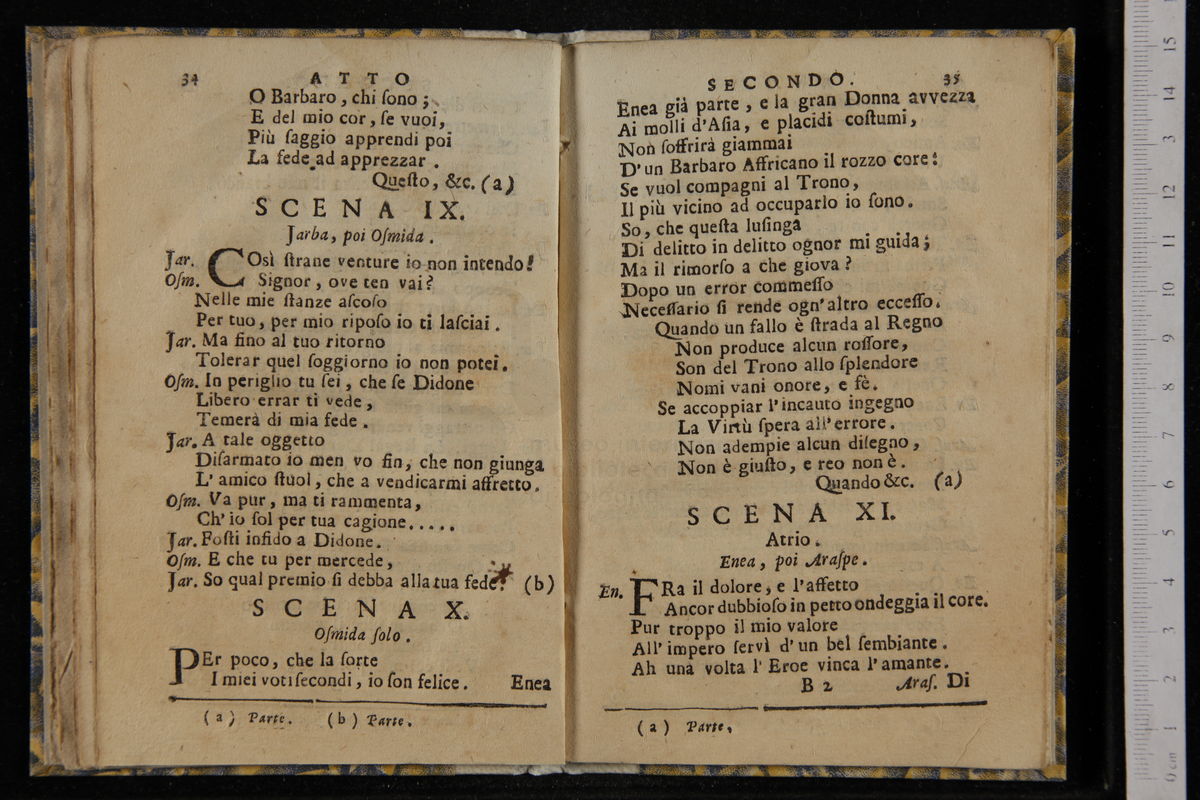 34 ATTO
O Barbaro, chi ſono;
E del mio cor, ſe vuoi,
Più ſaggio apprendi poi
La fede ad apprezzar.
Queſto, &c. (a)
SCENA IX.
Jarba, poi Oſmida.
Jar. COsì ſtrane venture io non intendo!
Oſm. Signor, ove ten vai?
Nelle mie ſtanze aſcoſo
Per tuo, per mio ripoſo io ti laſciai.
Jar. Ma fino al tuo ritorno
Tolerar quel ſoggiorno io non potei.
Oſm. In periglio tu ſei, che ſe Didone
Libero errar ti vede,
Temerà di mia fede.
Jar. A tale oggetto
Diſarmato io men vo fin, che non giunga
L' amico ſtuol, che a vendicarmi affretto.
Oſm. Va pur, ma ti rammenta,
Ch' io ſol per tua cagione.....
Jar. Foſti infido a Didone.
Oſm. E che tu per mercede,
Jar. So qual premio ſi debba alla tua fede. (b)
SCENA X.
Oſmida ſolo.
PEr poco, che la ſorte
I miei voti ſecondi, io ſon felice. Enea
(a) Parte. (b) Parte.
SECONDO. 35
Enea già parte, e la gran Donna avvezza
Ai molli d'Aſia, e placidi coſtumi,
Non ſoffrirà giammai
D'un Barbaro Affricano il rozzo core:
Se vuol compagni al Trono,
Il più vicino ad occuparlo io ſono.
So, che queſta luſinga
Di delitto in delitto ognor mi guida;
Ma il rimorſo a che giova?
Dopo un error commeſſo
Neceſſario ſi rende ogn'altro ecceſſo.
Quando un fallo è ſtrada al Regno
Non produce alcun roſſore,
Son del Trono allo ſplendore
Nomi vani onore, e fè.
Se accoppiar l'incauto ingegno
La Virtù ſpera all'errore.
Non adempie alcun diſegno,
Non è giuſto, e reo non è.
Quando &c. (a)
SCENA XI.
Atrio.
Enea, poi Araſpe.
En. FRa il dolore, e l'affetto
Ancor dubbioſo in petto ondeggia il core.
Pur troppo il mio valore
All' impero ſervì d'un bel ſembiante.
Ah una volta l'Eroe vinca l'amante.
B 2 Araſ. Di
(a) Parte.